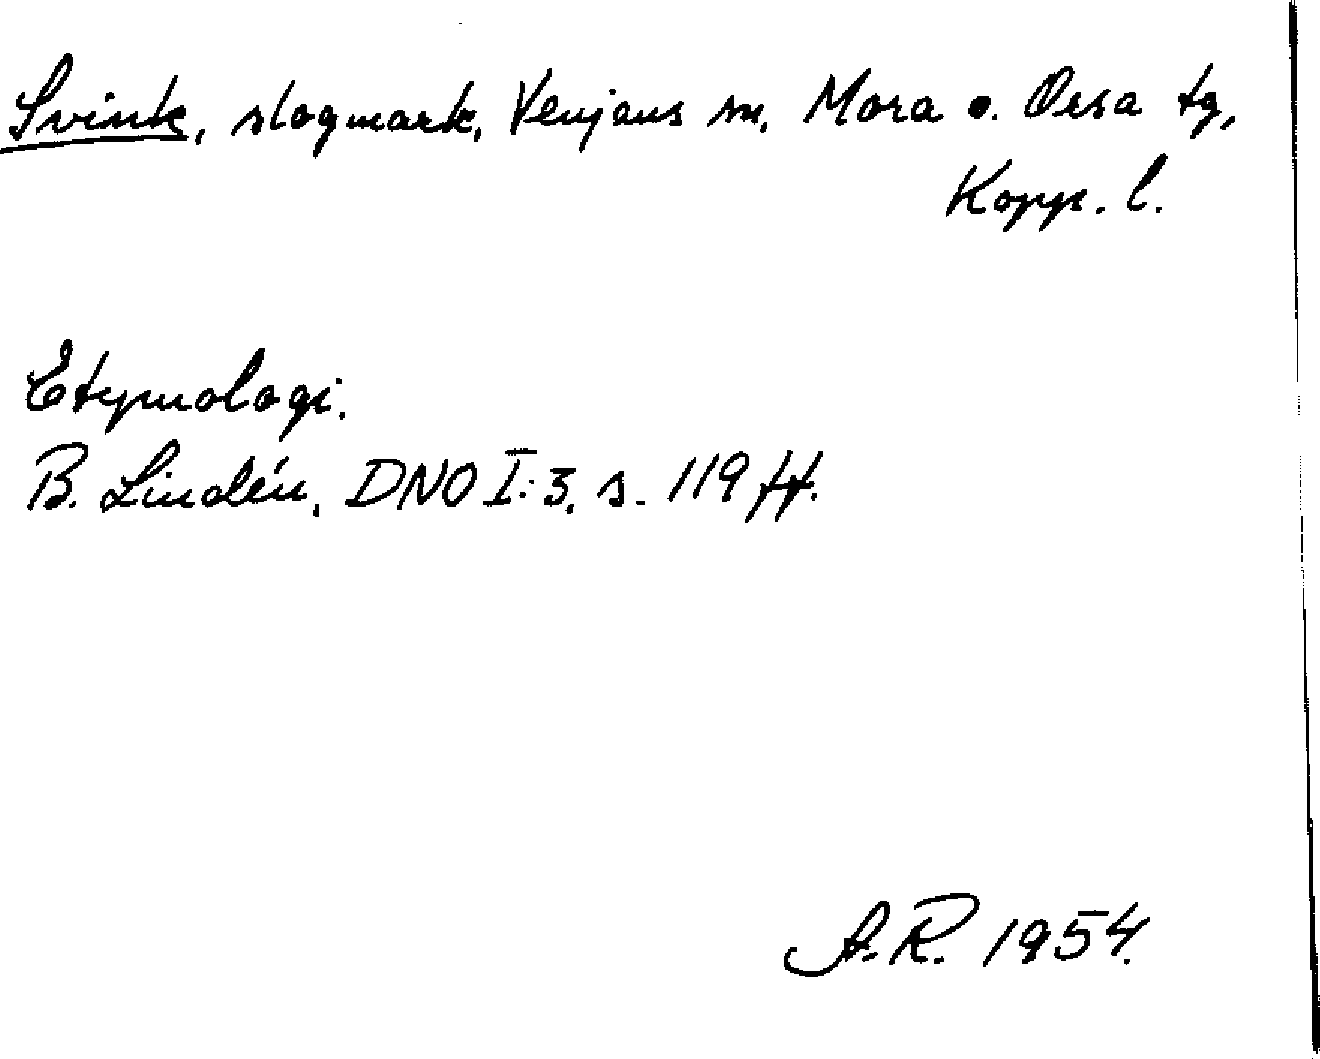 Svink, slogmark, Venjans sn, Mora o. Orsa tg,
Kopp. l.
Etymologi.
B. Lindén, DNO I:3, s. 119 ff.
A.R. 1954.